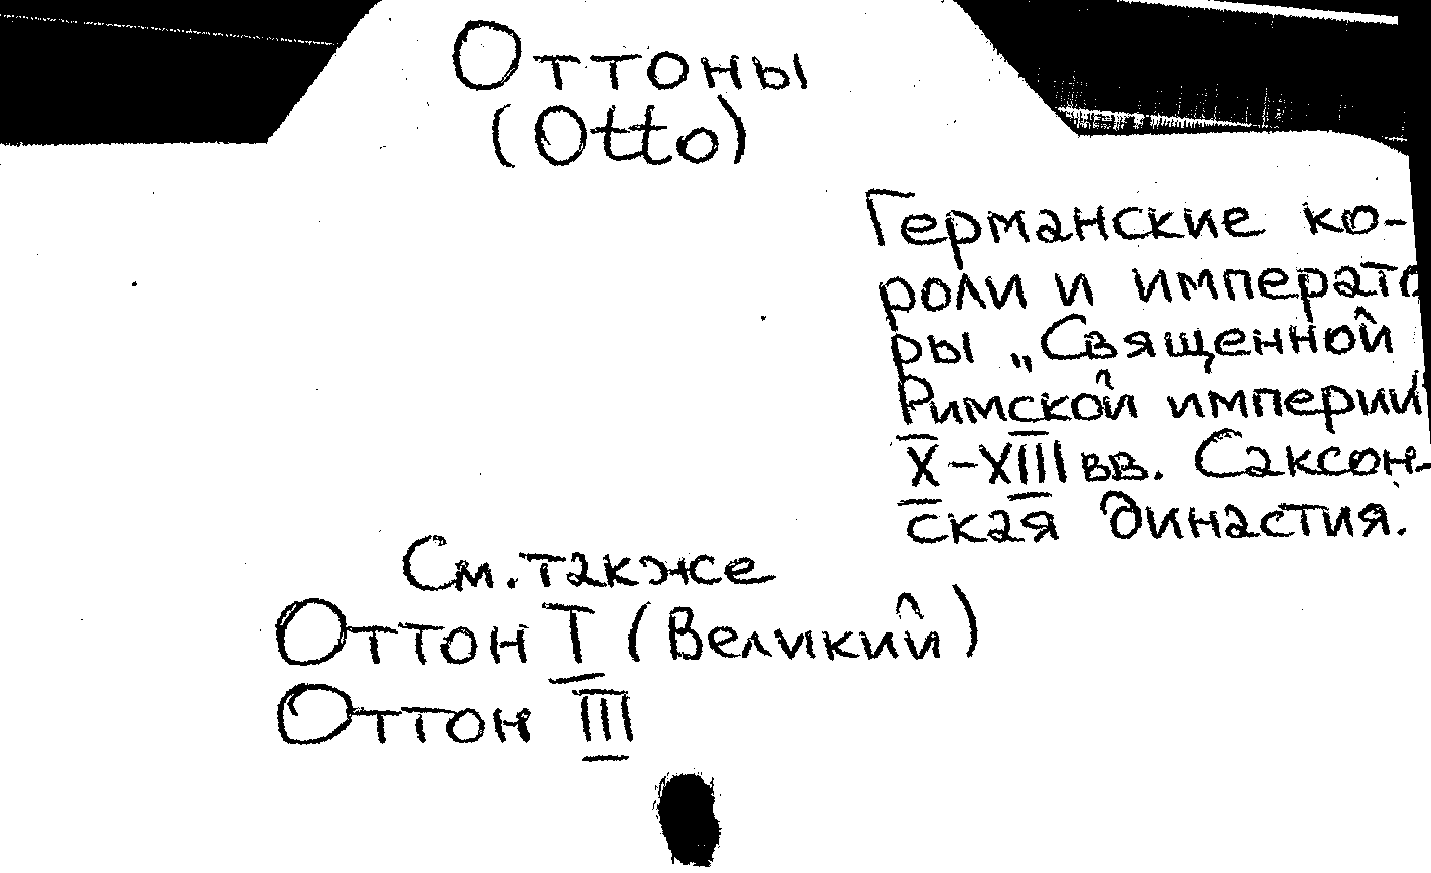 Оттоны
(Otto)
Германские ко-
роли и императо
ры „Священной
Римской империи"
X-XIII вв. Саксон-
ская династия.
См. также
Оттон I (Великий)
Оттон III